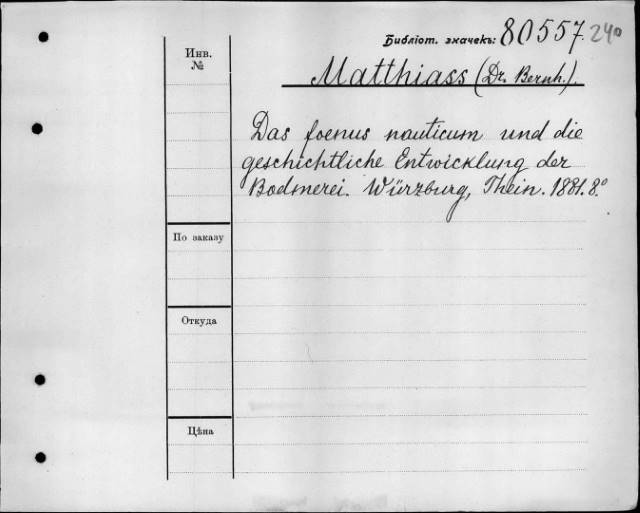 Библіот. значекъ: 80557. 240
Инв.
№
Matthiass (Dr. Bernh.).
Das foenus nauticum und die
geschichtliche Entwicklung der
Bodmerei. Würzburg, Thein. 1881. 8.º
По заказу
Откуда
Цѣна